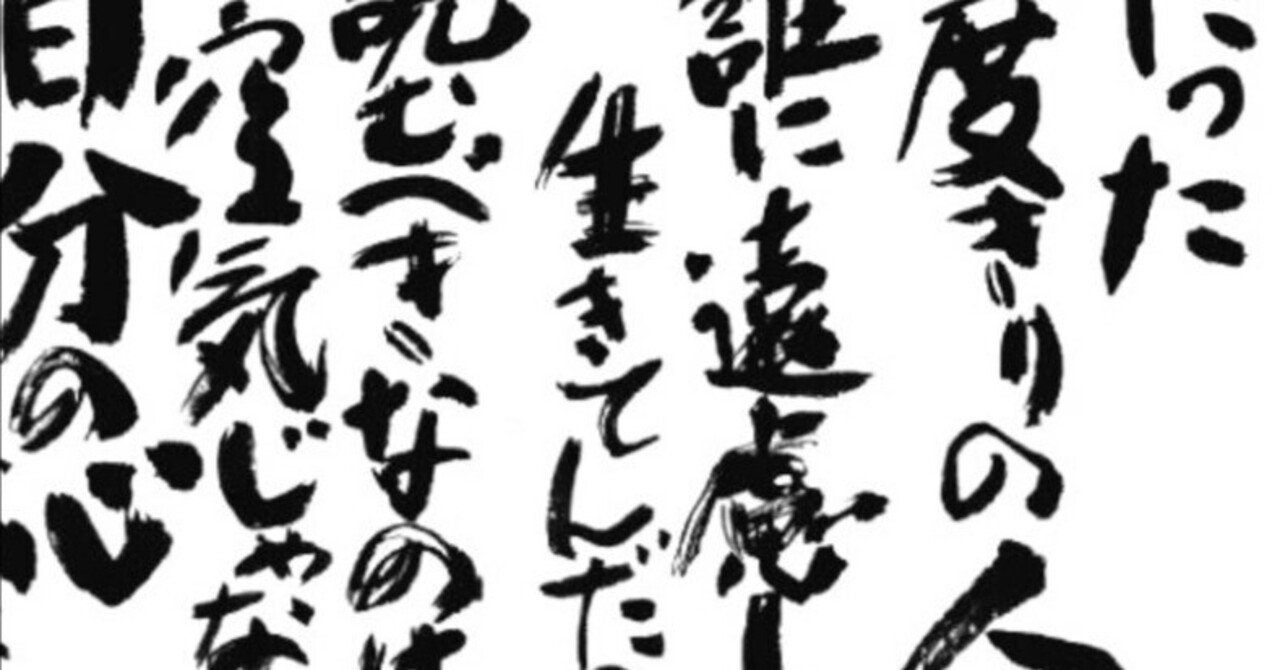 たった
度きりの人
誰に遠慮し
生きてんだ
読むべきなのは
空気じゃな
自分の心